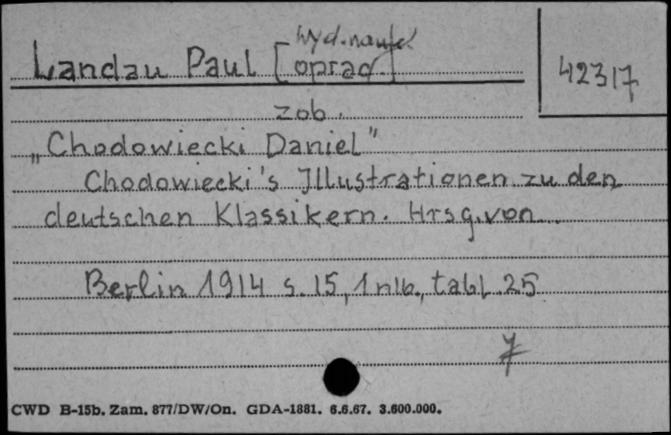 Wyd. nauk.
Landau Paul [oprac.]
42317
zob.
„Chodowiecki Daniel"
Chodowiecki's Illustrationen zu den
deutschen Klassikern. Hrsg. von...
Berlin 1914 s. 15, 1 nlb., tabl. 25
CWD B-15b. Zam. 877/DW/On. GDA-1881. 6.6.67. 3.600.000.